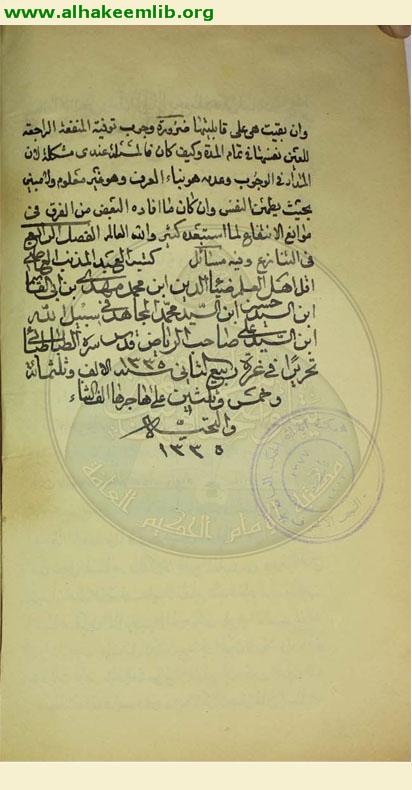 www.alhakeemlib.org
وان بقيت هى على قابليتها ضرورة وجوب توفية المنفعة الراجعة
للعين نفسها فى تمام المدة وكيف كان فالمسئلة عندى مشكلة لان
المدار فى الوجوب وعدمه هو بناء العرف وهو غير معلوم ولا مبين
بحيث يطمئن النفس وان كان ما افاده البعض من الفرق فى
موانع الانتفاع لما استبعده كثير والله العالم الفصل الرابع
فى التنازع وفيه مسائل كتبه العبد المذنب العاصى
اقل اهل العلم ضياء الدين ابن محمد مهدى بن
ابن السيد حسين ابن السيد محمد المجاهد فى سبيل الله
ابن السيد على صاحب الرياض قدس سره الطباطبائى
تحريرا فى غرة ربيع الثانى سنة ١٣٣٥ الالف وثلثمائة
وخمس وثلثين على هاجرها الف الثناء
والتحية
١٣٣٥
مكتبة الامام الحكيم العامة